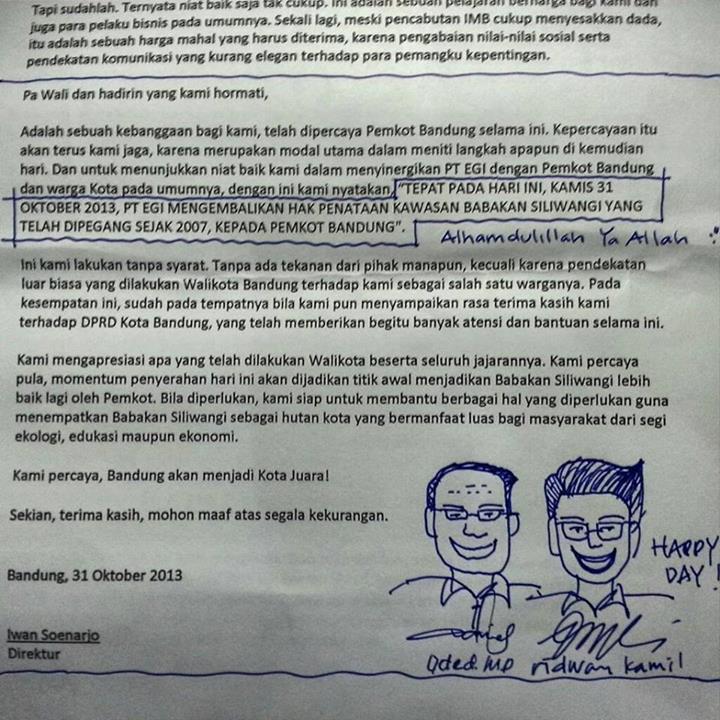 Tapi sudahlah. Ternyata niat baik saja tak cukup. Ini adalah sebuah pelajaran berharga bagi kami dan
juga para pelaku bisnis pada umumnya. Sekali lagi, meski pencabutan IMB cukup menyesakkan dada,
itu adalah sebuah harga mahal yang harus diterima, karena pengabaian nilai-nilai sosial serta
pendekatan komunikasi yang kurang elegan terhadap para pemangku kepentingan.
Pa Wali dan hadirin yang kami hormati,
Adalah sebuah kebanggaan bagi kami, telah dipercaya Pemkot Bandung selama ini. Kepercayaan itu
akan terus kami jaga, karena merupakan modal utama dalam meniti langkah apapun di kemudian
hari. Dan untuk menunjukkan niat baik kami dalam menyinergikan PT EGI dengan Pemkot Bandung
dan warga Kota pada umumnya, dengan ini kami nyatakan, "TEPAT PADA HARI INI, KAMIS 31
OKTOBER 2013, PT EGI MENGEMBALIKAN HAK PENATAAN KAWASAN BABAKAN SILIWANGI YANG
TELAH DIPEGANG SEJAK 2007, KEPADA PEMKOT BANDUNG".
Alhamdulillah Ya Allah
Ini kami lakukan tanpa syarat. Tanpa ada tekanan dari pihak manapun, kecuali karena pendekatan
luar biasa yang dilakukan Walikota Bandung terhadap kami sebagai salah satu warganya. Pada
kesempatan ini, sudah pada tempatnya bila kami pun menyampaikan rasa terima kasih kami
terhadap DPRD Kota Bandung, yang telah memberikan begitu banyak atensi dan bantuan selama ini.
Kami mengapresiasi apa yang telah dilakukan Walikota beserta seluruh jajarannya. Kami percaya
pula, momentum penyerahan hari ini akan dijadikan titik awal menjadikan Babakan Siliwangi lebih
baik lagi oleh Pemkot. Bila diperlukan, kami siap untuk membantu berbagai hal yang diperlukan guna
menempatkan Babakan Siliwangi sebagai hutan kota yang bermanfaat luas bagi masyarakat dari segi
ekologi, edukasi maupun ekonomi.
Kami percaya, Bandung akan menjadi Kota Juara!
Sekian, terima kasih, mohon maaf atas segala kekurangan.
HAPPY
DAY!
Bandung, 31 Oktober 2013
Iwan Soenarjo
Direktur
Oded MD ridwan kamil